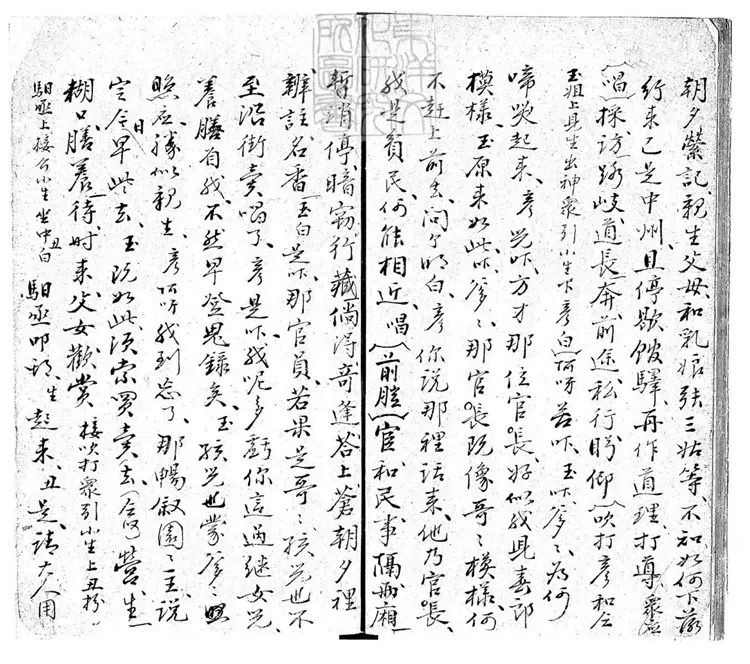 朝夕縈記親生父母和乳娘張三姑等、不知如何下落
行來已是中州、且停歇館驛、再作道理、打導、衆應
唱採訪路岐道長、奔前途私行盼仰、吹打彥和仝
玉姐上見生出神衆引小生下彥白阿呀苦吓、玉吓、爹〻為何
啼哭起來、彥兒吓、方才那位官長、好似我兒春郎
模樣、玉原來如此、吓、爹〻、那官長既像哥〻模樣、何
不赶上前去、問个明白、彥你說那裡話來、他乃官長、
我是貧民、何能相近、唱前腔宦和民事隔兩廂
暫消停、暗窃行藏倘得奇逢答上蒼朝夕裡
辦訪名香玉白是吓、那官員、若果是哥〻、孩兒也不
至沿街賣唱了、彥是吓、我呢多虧你這過継女兒
養膳自我、不然早登鬼錄矣、玉孩兒也蒙爹〻照
照应、勝似親生、彥阿呀我到忘了、那暢叙園〻主說
定今日早些去、玉既如此須索買賣去、合唱營生
糊口膳養、待時來父女歡賞接吹打衆引小生上丑扮
馹丞上接介小生坐中丑白馹丞叩頭、生起來、丑是、請大人用